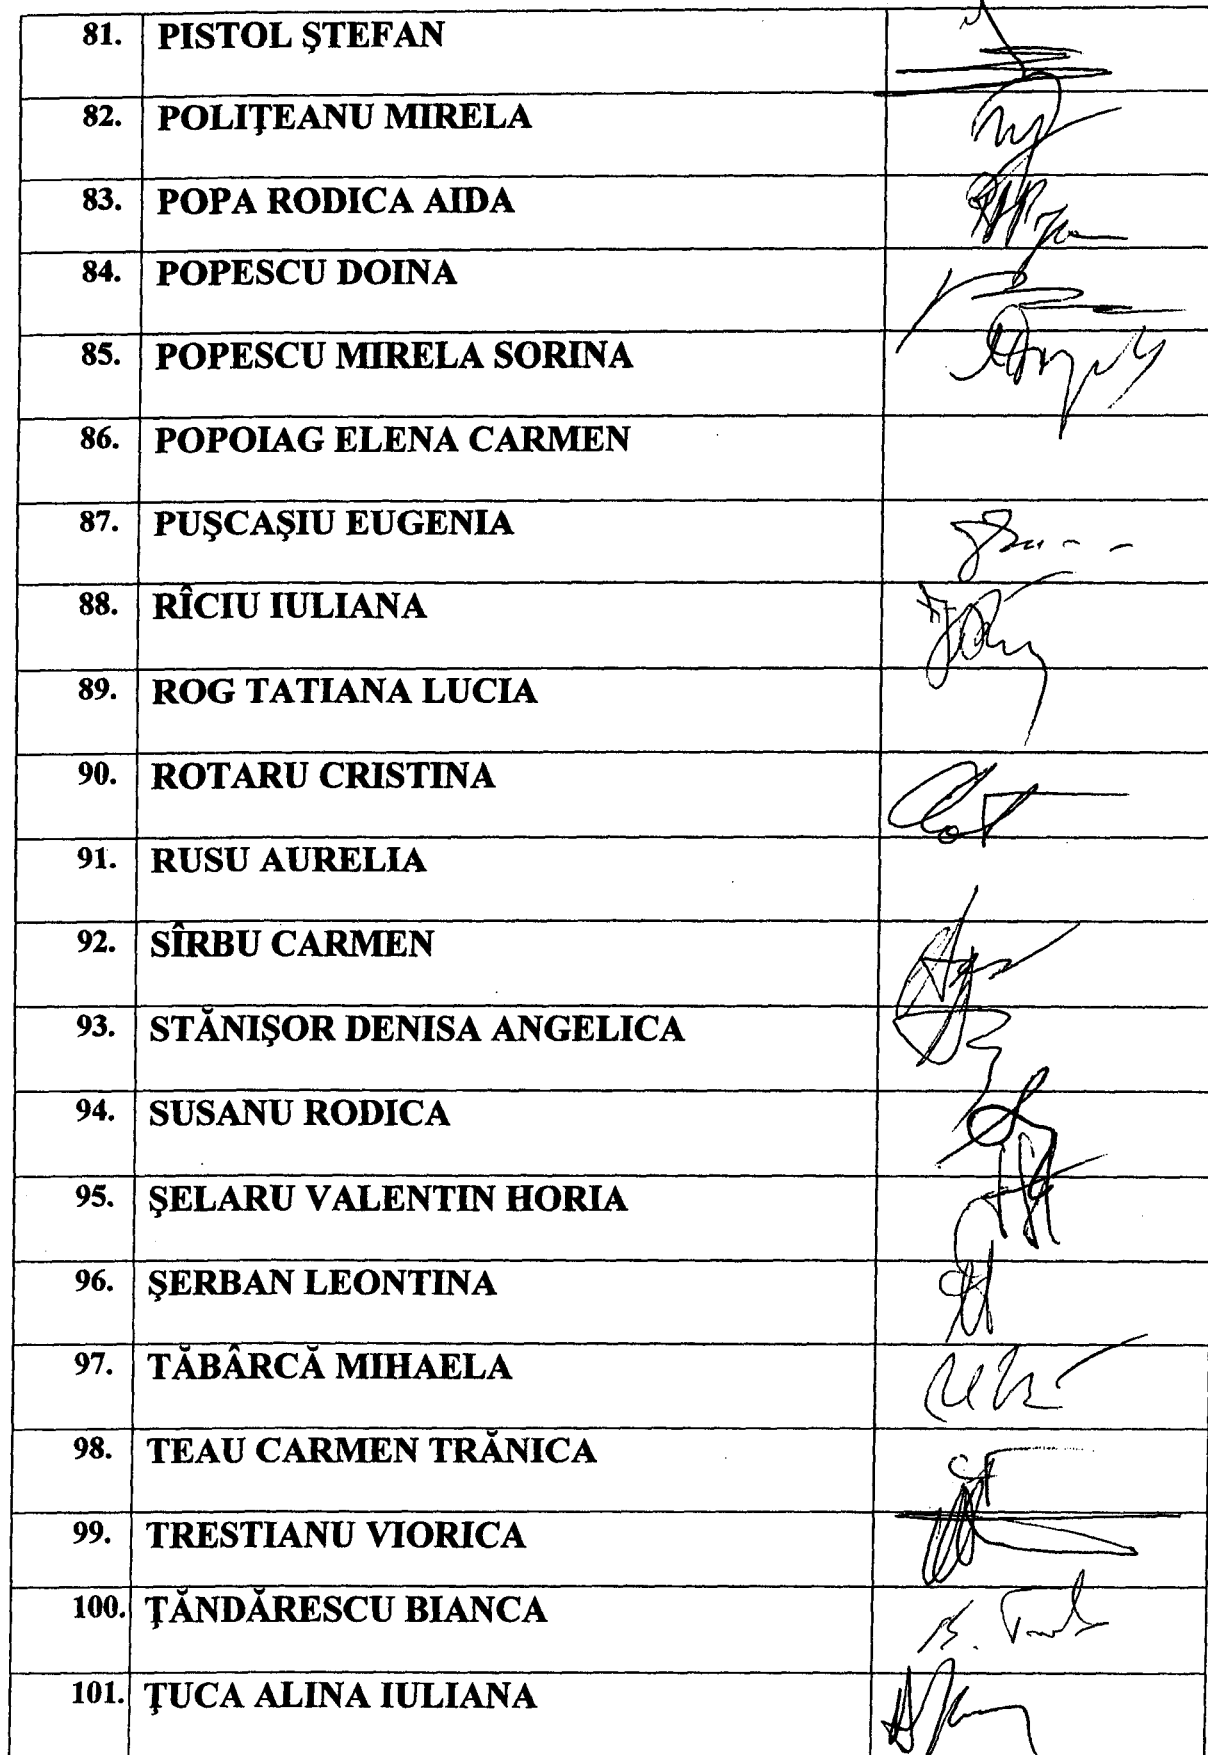 81. PISTOL ŞTEFAN
82. POLIŢEANU MIRELA
83. POPA RODICA AIDA
84. POPESCU DOINA
85. POPESCU MIRELA SORINA
86. POPOIAG ELENA CARMEN
87. PUŞCAŞIU EUGENIA
88. RÎCIU IULIANA
89. ROG TATIANA LUCIA
90. ROTARU CRISTINA
91. RUSU AURELIA
92. SÎRBU CARMEN
93. STĂNIŞOR DENISA ANGELICA
94. SUSANU RODICA
95. ŞELARU VALENTIN HORIA
96. ŞERBAN LEONTINA
97. TĂBÂRCĂ MIHAELA
98. TEAU CARMEN TRĂNICA
99. TRESTIANU VIORICA
100. ŢĂNDĂRESCU BIANCA
101. ŢUCA ALINA IULIANA